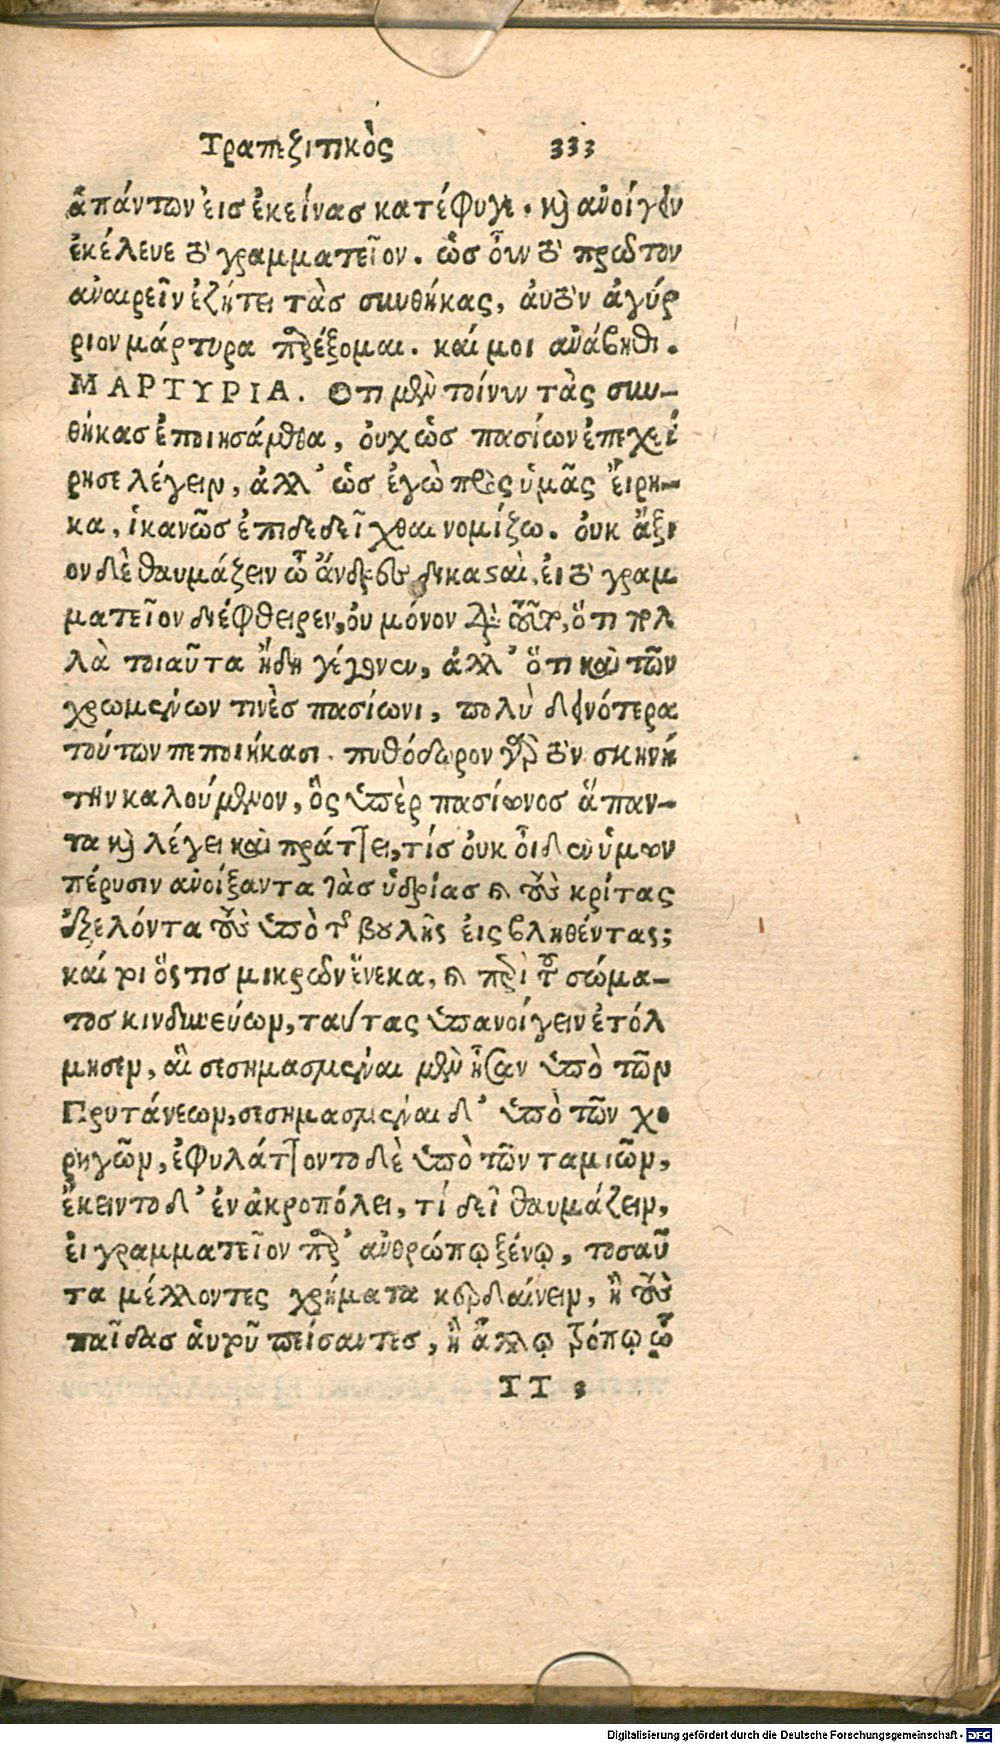 Τραπεζιτικὸς 333
ἁπάντων ἐισ ἐκείνασ κατέφυγε. καὶ ἀνοίγειν
ἐκέλευε τὸ γραμματεῖον. ὡσ οὖν τὸ πρῶτον
ἀναιρεῖν ἐζήτει τὰσ συνθήκας, ἀυτὸν ἀγύρ
ριον μάρτυρα παρέξομαι. καί μοι ἀνάβηθι.
ΜΑΡΤΥΡΙΑ. Οτι μὲν τοίνυν τὰς συν-
θήκασ ἐποιησάμεθα, ὀυχ ὡσ πασίων ἐπεχεί
ρησε λέγειν, ἀλλ' ὡσ ἐγὼ πρὸς ὑμᾶς ἔιρη-
κα, ἱκανῶσ ἐπιδεδεῖχθαι νομίζω. ὀυκ ἄξι
ον δὲ θαυμάζειν ὦ ἄνδρες δικασαὶ, ἐι τὸ γραμ
ματεῖον διέφθειρεν, ὀυ μόνον διὰ τοῦτ, ὅτι πολ
λὰ τοιαῦτα ἤδη γέγονεν, ἀλλ' ὅτι καὶ τῶν
χρωμένων τινὲσ πασίωνι, πολὺ δεινότερα
τούτων πεποιήκασι. πυθόδωρον γὰρ τὸν σκηνή
την καλούμενον, ὃς ὑπὲρ πασίωνοσ ἅπαν-
τα καὶ λέγει καὶ πράττει, τίσ ὀυκ οἶδεν ὑμων
πέρυσιν ἀνοίξαντα τὰσ ὑδρίασ καὶ τοὺς κρίτας
ἐξελόντα τοὺς ὑπὸ τῆς βουλῆς ἐις βληθέντας;
καί τοι ὅς τισ μικρῶν ἕνεκα, καὶ περὶ τοῦ σώμα-
τοσ κινδυνεύων, ταύτας ὑπανοίγειν ἐτόλ
μησεν, αἳ σεσημασμέναι μὲν ἦσαν ὑπὸ τῶν
Πρυτάνεων, σεσημασμέναι δ' ὑπὸ τῶν χο
ρηγῶν, ἐφυλάττοντο δὲ ὑπὸ τῶν ταμιῶν,
ἔκειντο δ' ἐν ἀκροπόλει, τί δεῖ θαυμάζειν,
ἐι γραμματεῖον παρ' ἀνθρώπῳ ξένῳ, τοσαῦ
τα μέλλοντες χρήματα κερδαίνειν, ἢ τοὺς
παῖδασ ἀυτοῦ πείσαντεσ, ἢ ἄλλῳ τρόπῳ ᾧ
TT 3
Digitalisierung gefördert durch die Deutsche Forschungsgemeinschaft - DFG